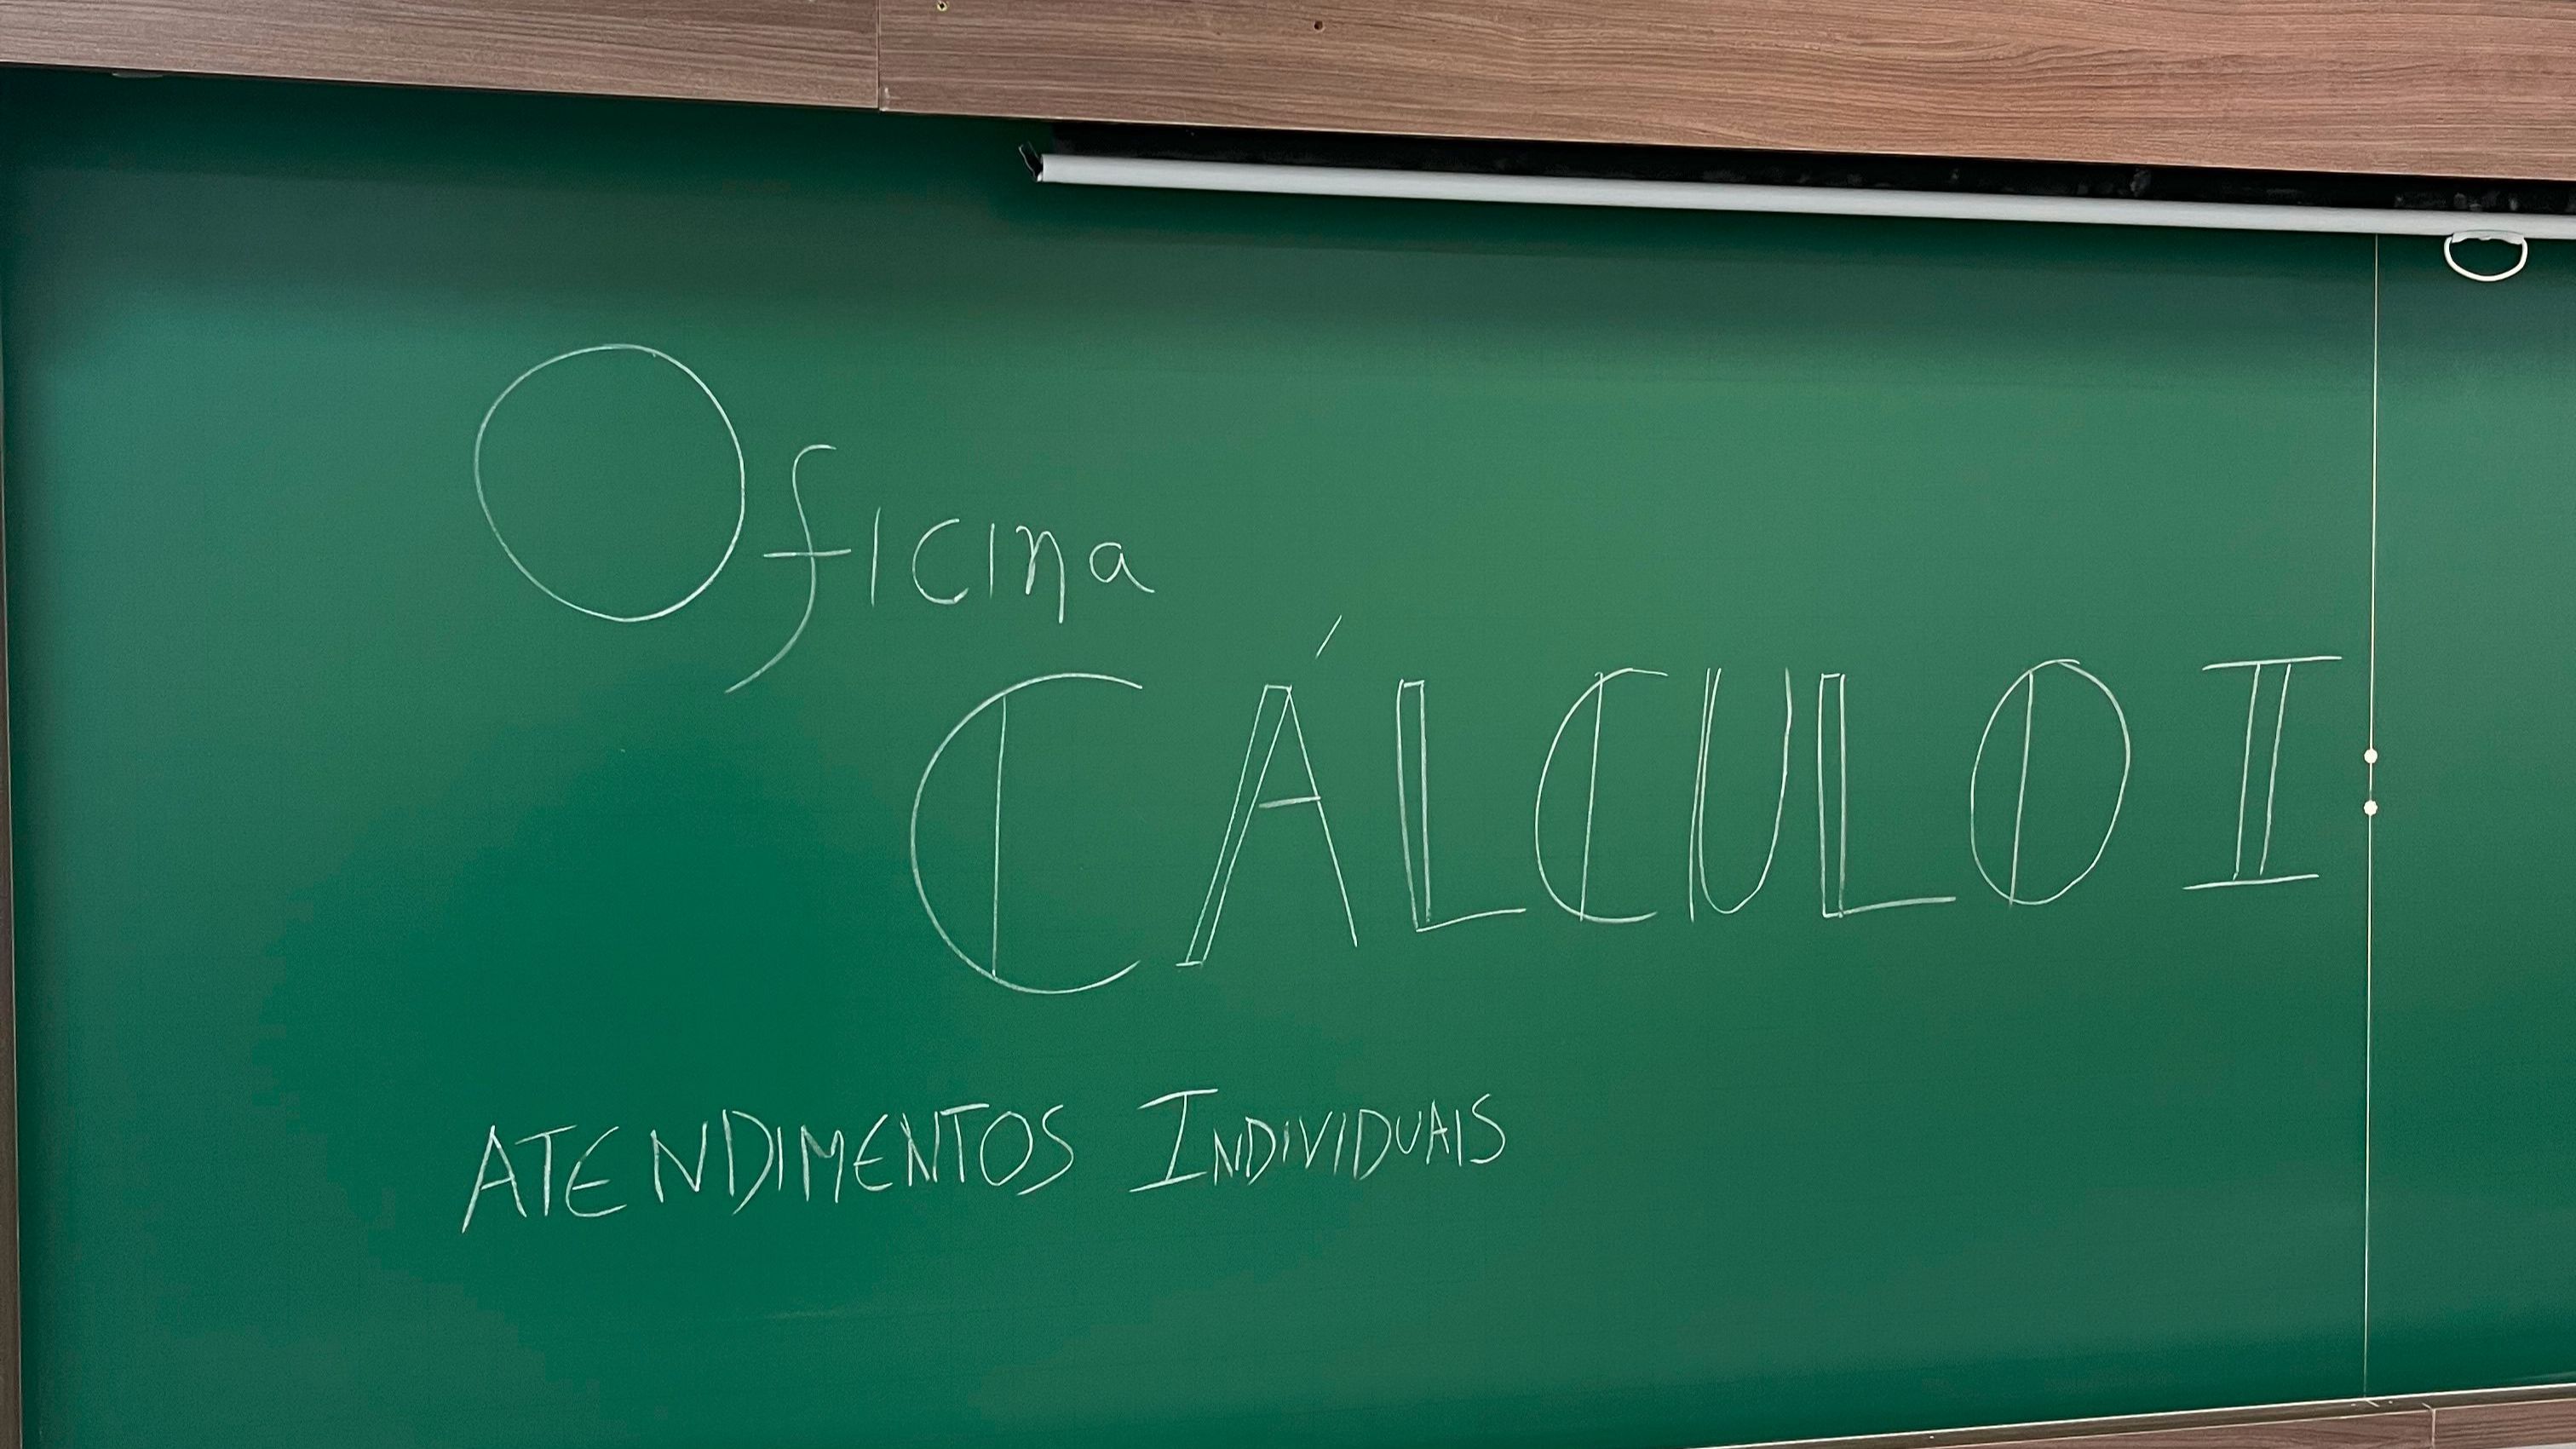 Oficina
CÁLCULO I
ATENDIMENTOS INDIVIDUAIS